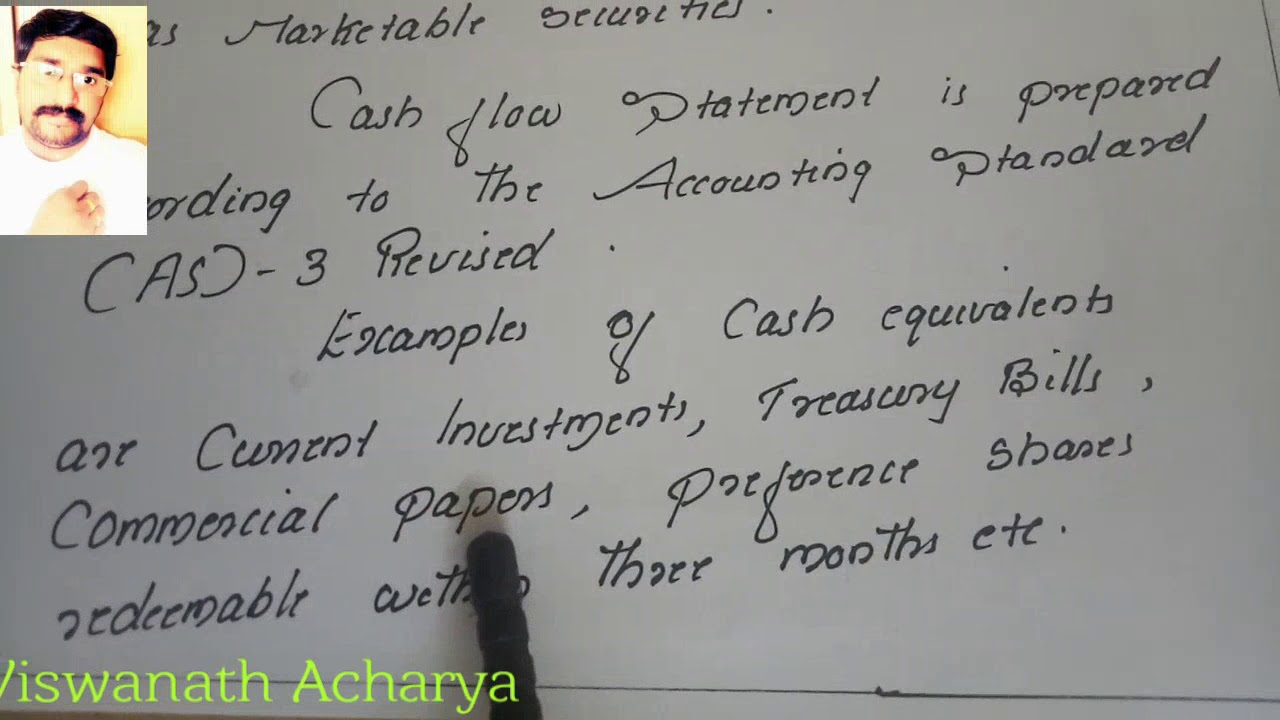 as Marketable Securities.
Cash flow Statement is prepared
ording to the Accounting Standard
(AS)-3 Revised.
Examples of Cash equivalents
are Current Investments, Treasury Bills,
Commercial papers, preference shares
redeemable within three months etc.
Viswanath Acharya